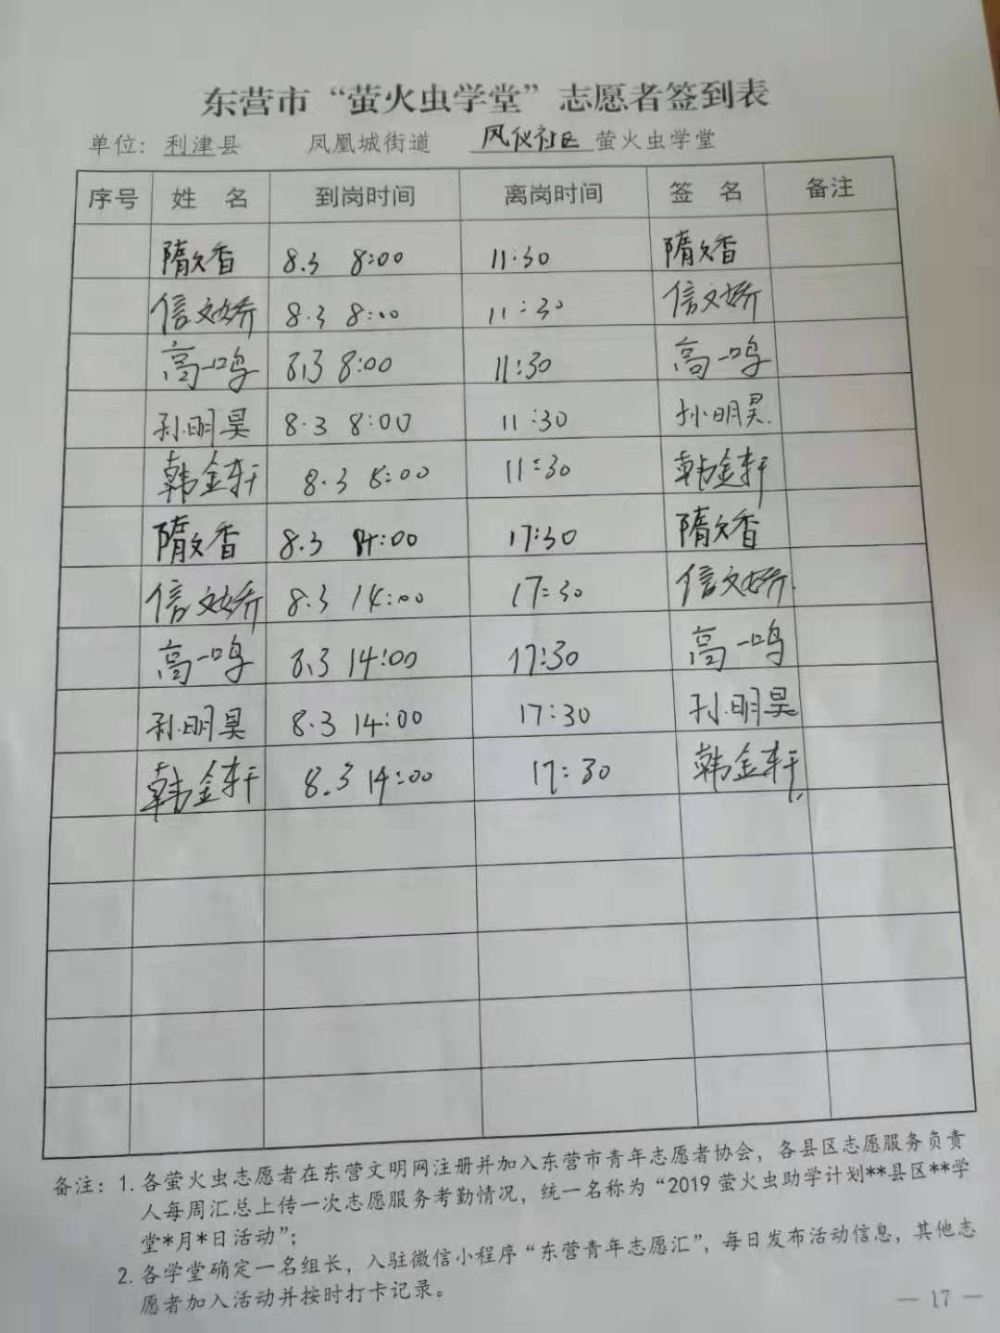 东营市“萤火虫学堂”志愿者签到表
单位：利津县 凤凰城街道 凤仪社区 萤火虫学堂
序号 姓 名 到岗时间 离岗时间 签 名 备注
隋文香 8.3 8:00 11:30 隋文香
信文娇 8.3 8:00 11:30 信文娇
高一鸣 8.3 8:00 11:30 高一鸣
孙明昊 8.3 8:00 11:30 孙明昊
韩金轩 8.3 8:00 11:30 韩金轩
隋文香 8.3 14:00 17:30 隋文香
信文娇 8.3 14:00 17:30 信文娇
高一鸣 8.3 14:00 17:30 高一鸣
孙明昊 8.3 14:00 17:30 孙明昊
韩金轩 8.3 14:00 17:30 韩金轩
备注：1. 各萤火虫志愿者在东营文明网注册并加入东营市青年志愿者协会，各县区志愿服务负责
人每周汇总上传一次志愿服务考勤情况，统一名称为“2019 萤火虫助学计划**县区**学
堂*月*日活动”；
2. 各学堂确定一名组长，入驻微信小程序“东营青年志愿汇”，每日发布活动信息，其他志
愿者加入活动并按时打卡记录。
— 17 —